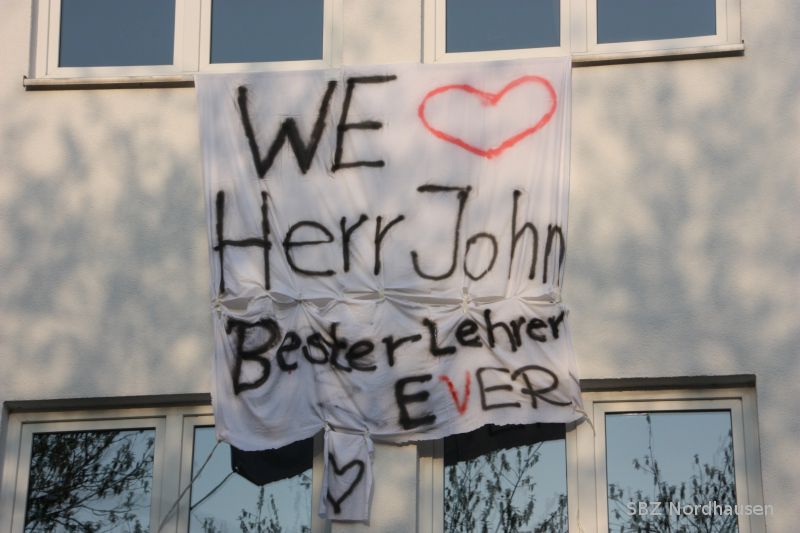 WE
Herr John
Bester Lehrer
EVER
SBZ Nordhausen